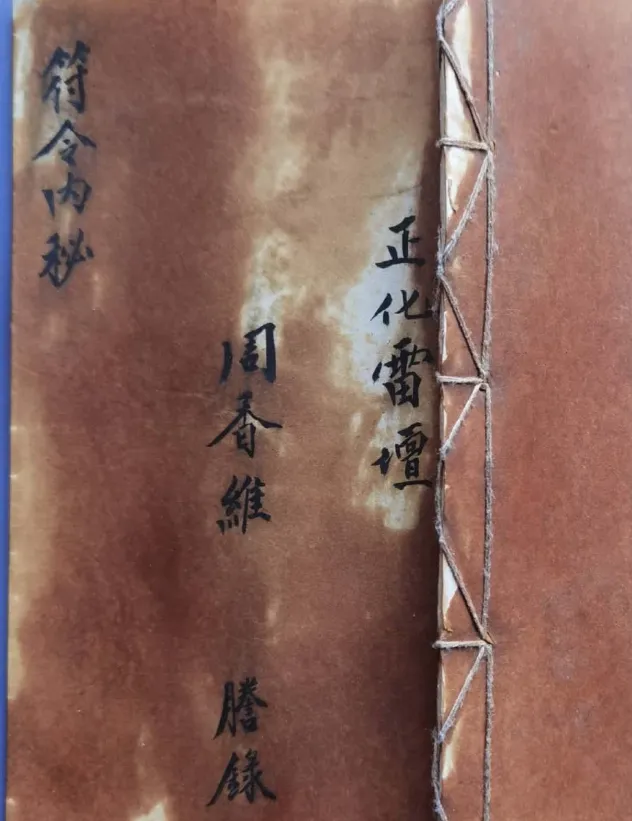 正化雷壇
周香維 謄錄
符令內秘